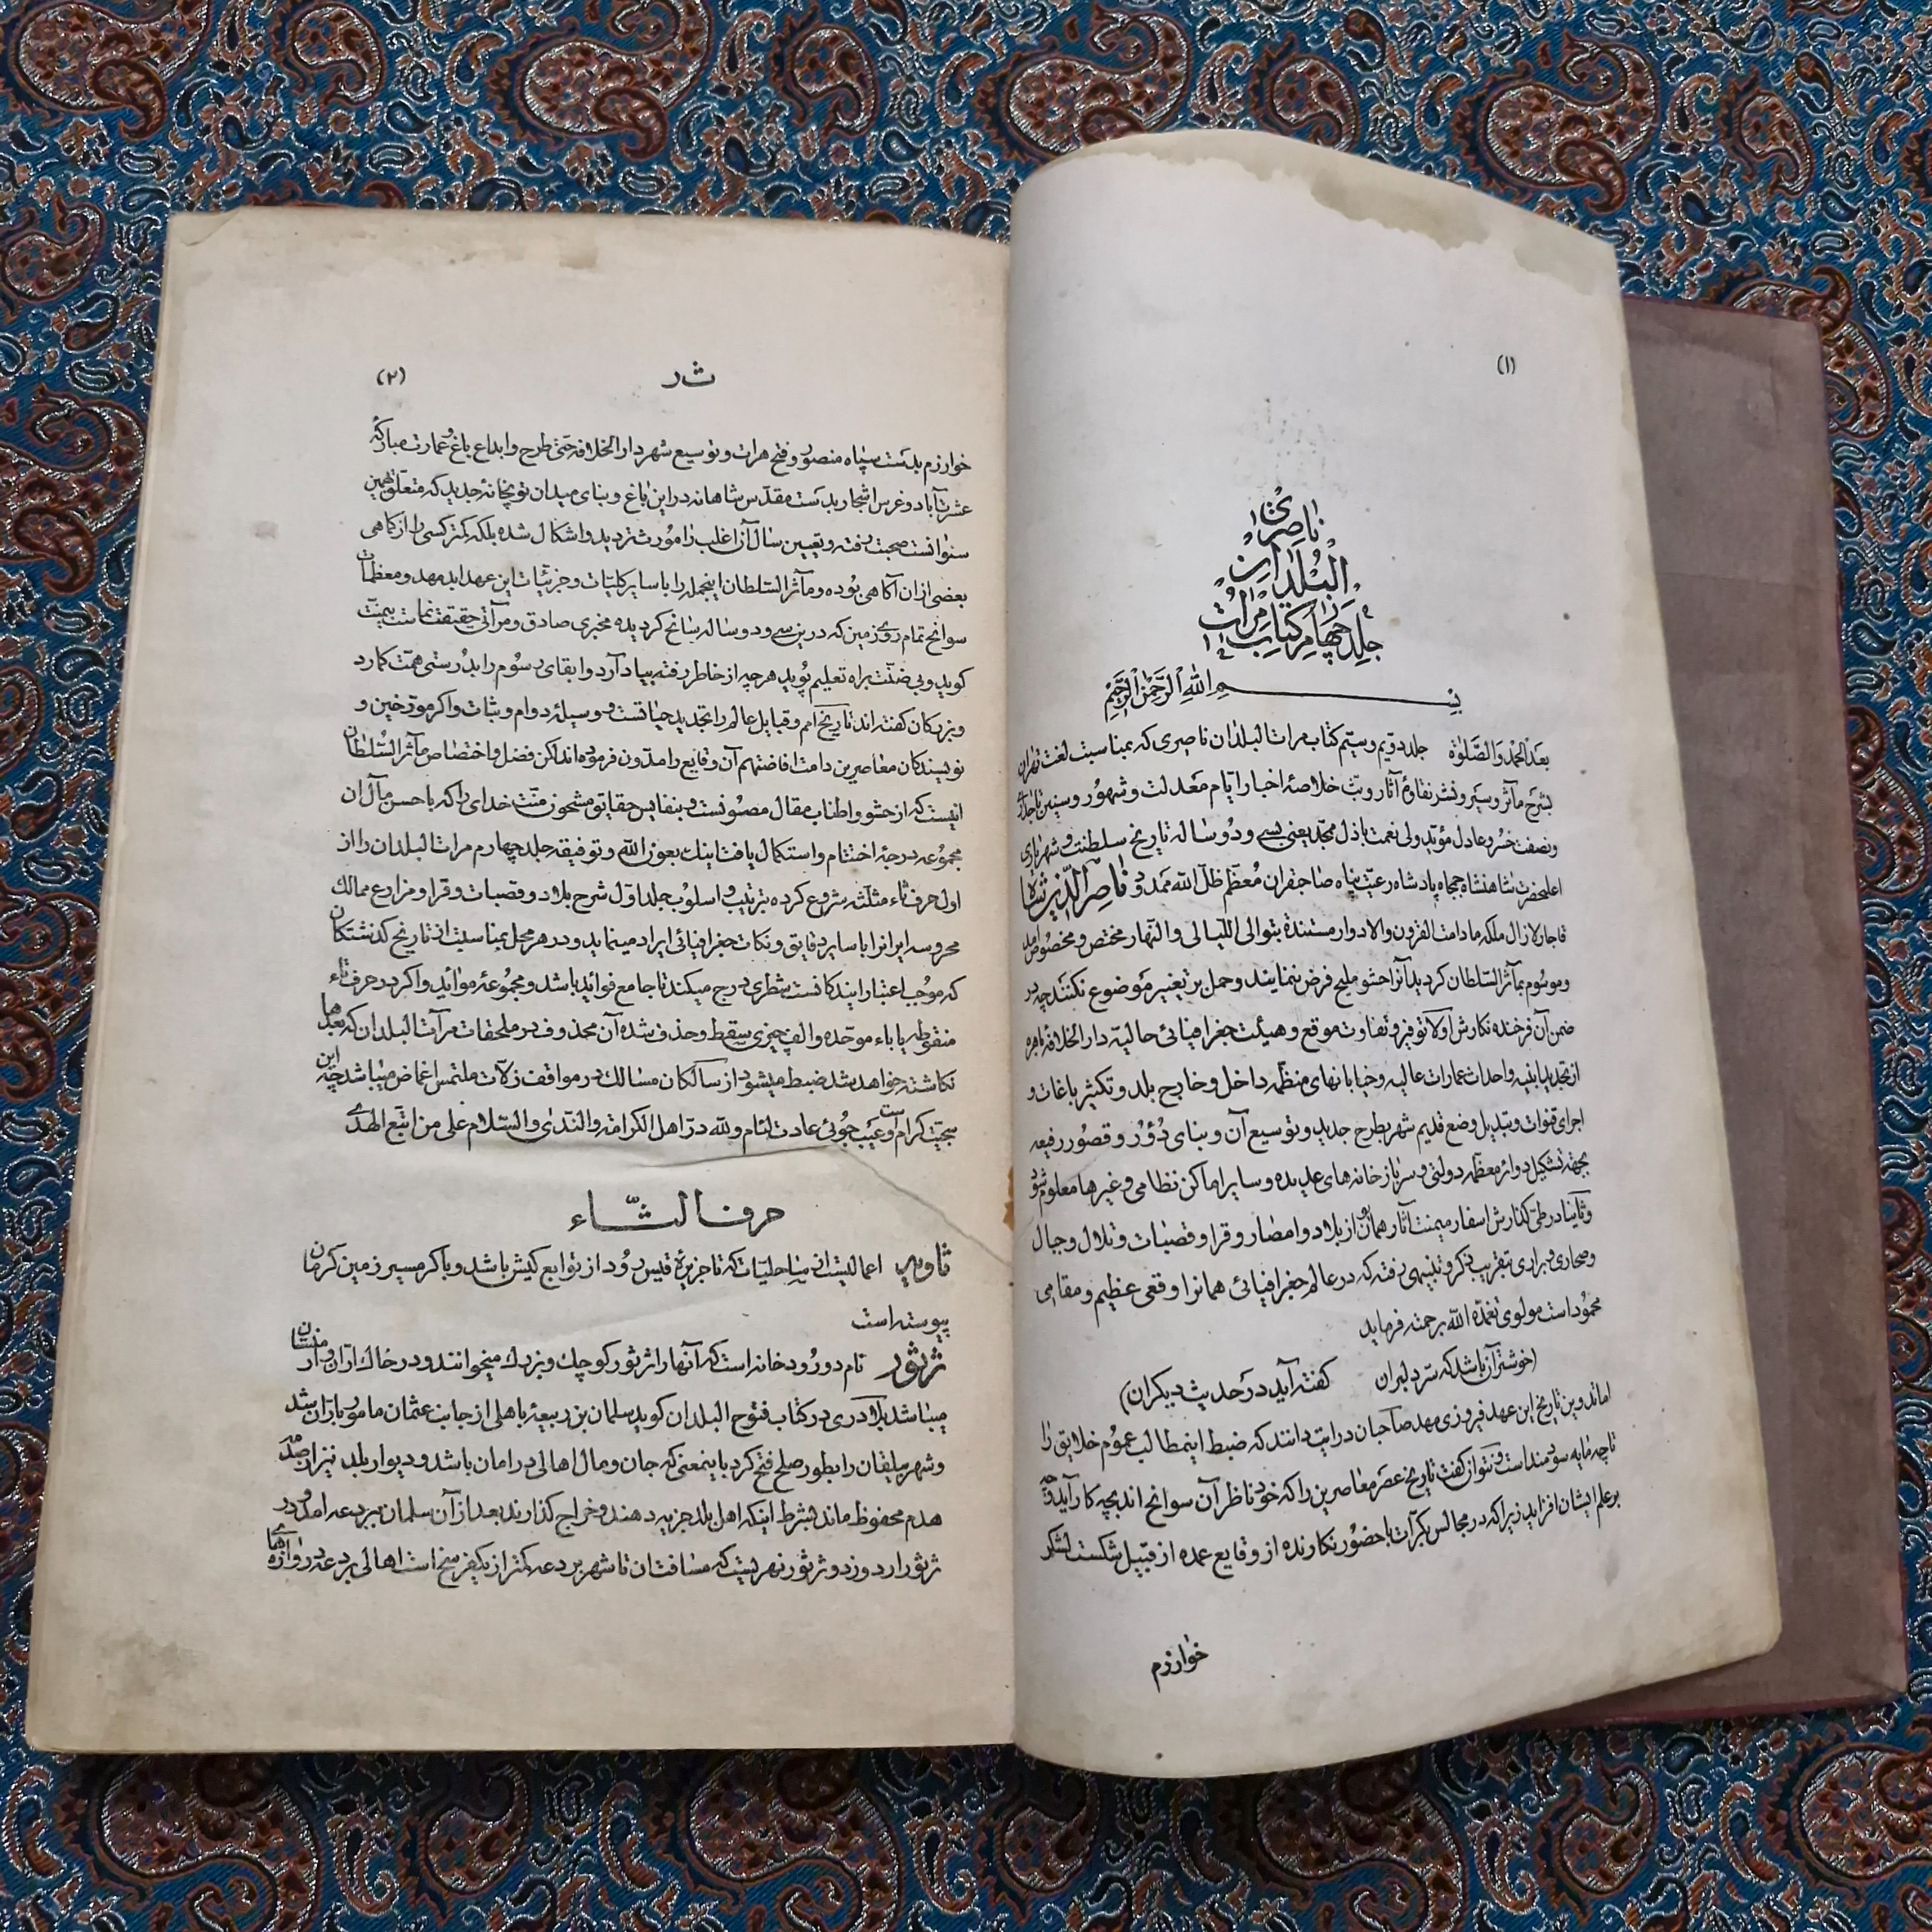 (۱)
ناصری
البلدان
جلد چهارم کتاب مرات
بسم الله الرحمن الرحیم
بعد الحمد والصلوة جلد دویم و سیم کتاب مرات البلدان ناصری که بمناسبت لغت تهران
بشرح مآثر و سیر و نشر نقاوهٔ آثار و بث خلاصهٔ اخبار ایام معدلت و شهور و سنین تاجداری
و نصفت خسرو عادل مؤید ولی نعمت باذل ممجد یعنی سی و دو ساله تاریخ سلطنت و شهریاری
اعلیحضرت شاهنشاه جمجاه پادشاه رعیت پناه صاحبقران معظم ظل الله ممدود ناصرالدین شاه
قاجار لازال ملکه مادامت القرون والادوار مستندة بتوالی اللیالی والنهار مختص و مخصوص آمد
و موسوم بمآثر السلطان کردید آنرا حشو ملیح فرض نمایند و حمل بر تغییر موضوع نکنند چه در
ضمن آن فرخنده نکارش اولا توفیر و تفاوت موقع و هیئت جغرافیائی حالیه دار الخلافه باهره
از تجدید ابنیه و احداث عمارات عالیه و خیابانهای منظمه داخل و خارج بلد و تکثیر باغات و
اجرای قنوات و تبدیل وضع قدیم شهر بطرح جدید و توسیع آن و بنای دور و قصور رفیعه
بجهة تشکیل دوائر معظمه دولتی و سربازخانه های عدیده و سایر اماکن نظامی و غیرها معلوم شود
و ثانیا در طی کذارش اسفار میمنت آثار همایون از بلاد و امصار و قرا و قصبات و تلال و جبال
و صحاری و براری بتقریب ذکر و تنبیهی رفته که در عالم جغرافیائی همانرا وقعی عظیم و مقامی
محمود است مولوی تغمده الله برحمته فرماید
(خوشتر آن باشد که سر دلبران کفته آید در حدیث دیکران)
اما تدوین تاریخ این عهد فیروزی مهد صاحبان درایت دانند که ضبط اینمطالب عموم خلایق را
تا چه مایه سودمند است و نتوان کفت تاریخ عصر معاصرین را که خود ناظر آن سوانح اند بچه کار آید و چه
بر علم ایشان افزاید زیرا که در مجالس بکرات با حضور نکارنده از وقایع عمده از قبیل شکست لشکر
خوارزم
ث ر
(۲)
خوارزم بدست سپاه منصور و فتح هرات و توسیع شهر دار الخلافه حتی طرح و ابداع باغ و عمارت مبارکه
عشرت آباد و غرس اشجار بدست مقدس شاهانه در این باغ و بنای میدان توپخانهٔ جدید که متعلق بهمین
سنوانست صحبت رفته و تعیین سال آن اغلب را مورث تردید و اشکال شده بلکه کمتر کسی را از کماهی
بعضی از ان آکاهی بوده و مآثر السلطان اینجمله را با سایر کلیات و جزئیات این عهد ابد مهد و معظمات
سوانح تمام روی زمین که در ین سی و دو ساله سانح کردیده مخبری صادق و مرآتی حقیقت نماست بی منت
کوید و بی ضنت براه تعلیم پوید هر چه از خاطر رفته بیاد آرد و ابقای رسوم را بدرستی همت کمارد
و بزرکان کفته اند تاریخ امم و قبایل عالم را تجدید حیاتست و وسیله دوام و ثبات و اکر مورخین و
نویسندکان معاصرین دامت افاضتهم آن وقایع را مدون فرموده اند لکن فضل و اختصاص مآثر السلطان
اینست که از حشو و اطناب مقال مصونست و بنفایس حقایق مشحون منت خدای را که با حسن مآل ان
مجموعه درجهٔ اختتام و استکمال یافت اینک بعون الله و توفیقه جلد چهارم مرات البلدان را از
اول حرف ثاء مثلثه شروع کرده بترتیب و اسلوب جلد اول شرح بلاد و قصبات و قرا و مزارع ممالک
محروسه ایرانرا با سایر دقایق و نکات جغرافیائی ایراد مینماید و در هر محل بمناسبت از تاریخ کذشتکان
که موجب اعتبار ایندکانست شطری درج میکند تا جامع فوائد باشد و مجموعهٔ موائد و اکر در حرف تاء
منقوطه یا باء موحده و الف چیزی سقط و حذف شده آن محذوف در ملحقات مرآت البلدان که بعدها
نکاشته خواهد شد ضبط میشود از سالکان مسالک در مواقف زلات ملتمس اغماض میباشد چه این
سجیت کرام است و عیب جوئی عادت لئام ولله در اهل الکرامة والندی والسلام علی من اتبع الهدی
حرف الثاء
ثاویه اعمالیست از ساحلیات که تا جزیرهٔ قیس رود از توابع کیش باشد و با کرمسیر زمین کرمان
پیوسته است
ثرثور نام دو رودخانه است که آنها را ثرثور کوچک و بزرک میخوانند و در خاک اران و ارمنستان
میباشد بلاذری در کتاب فتوح البلدان کوید سلمان بن ربیعهٔ باهلی از جانب عثمان مامور باران شد
و شهر بیلقان را بطور صلح فتح کرد باینمعنی که جان و مال اهالی در امان باشد و دیوار بلد نیز از صدمه
هدم محفوظ ماند بشرط اینکه اهل بلد جزیه دهند و خراج کذارند بعد از آن سلمان ببردعه امد و در
ثرثور اردو زد و ثرثور نهریست که مسافتان تا شهر بردعه کمتر از یکفرسخ است اهالی بردعه دروازه های